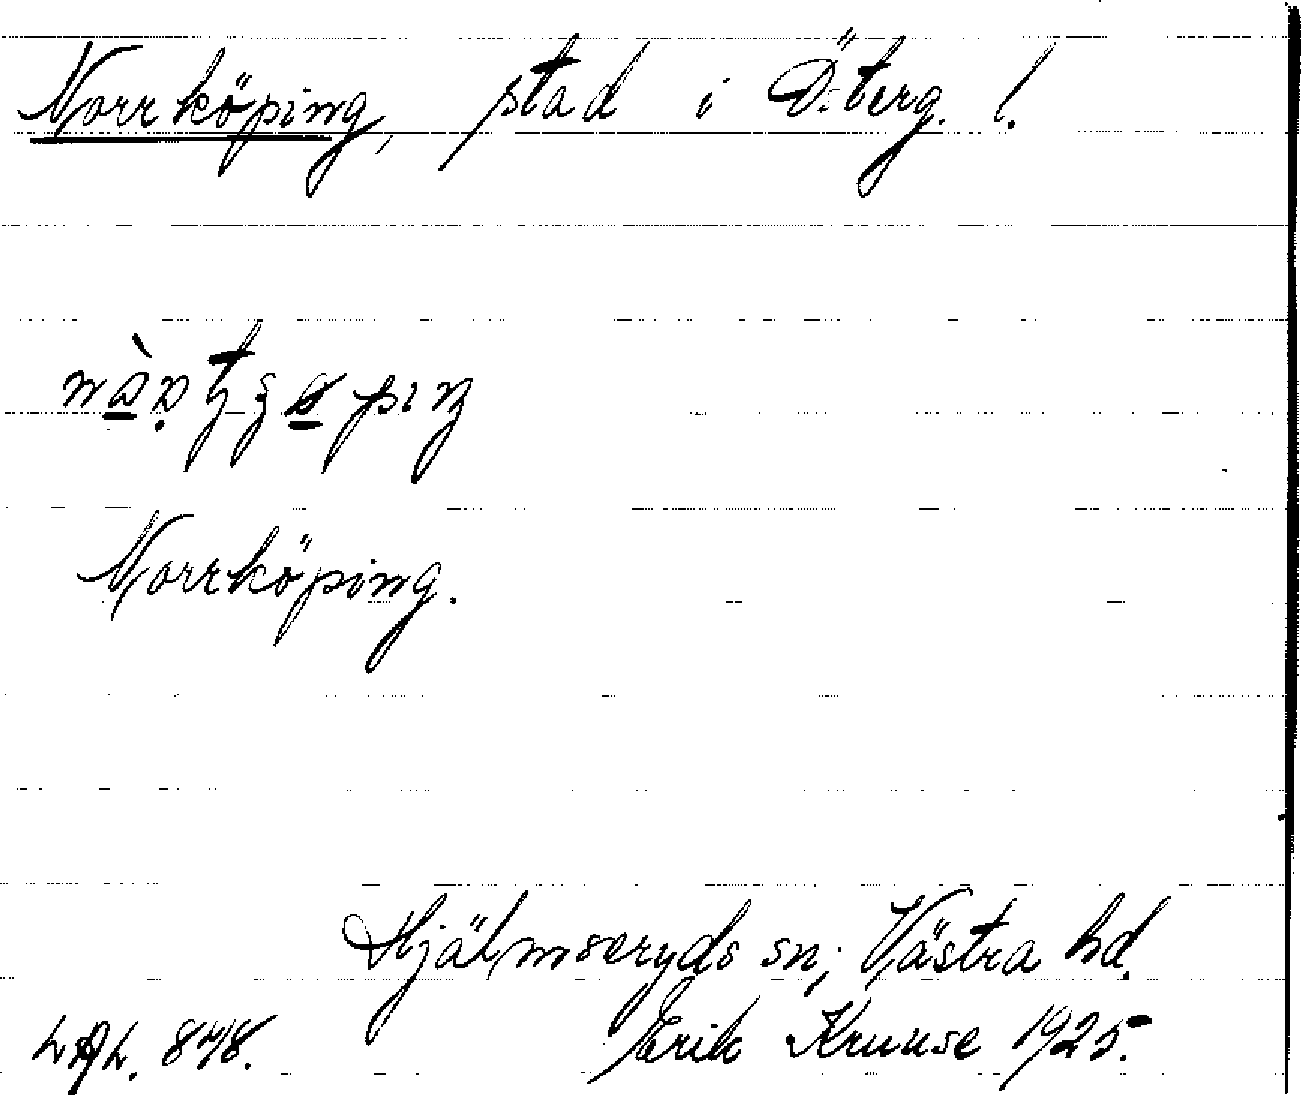 Norrköping, stad i Österg. l.
Norrköping.
Hjälmseryds sn; Västra hd.
LAL. 848. Erik Kruuse 1925.